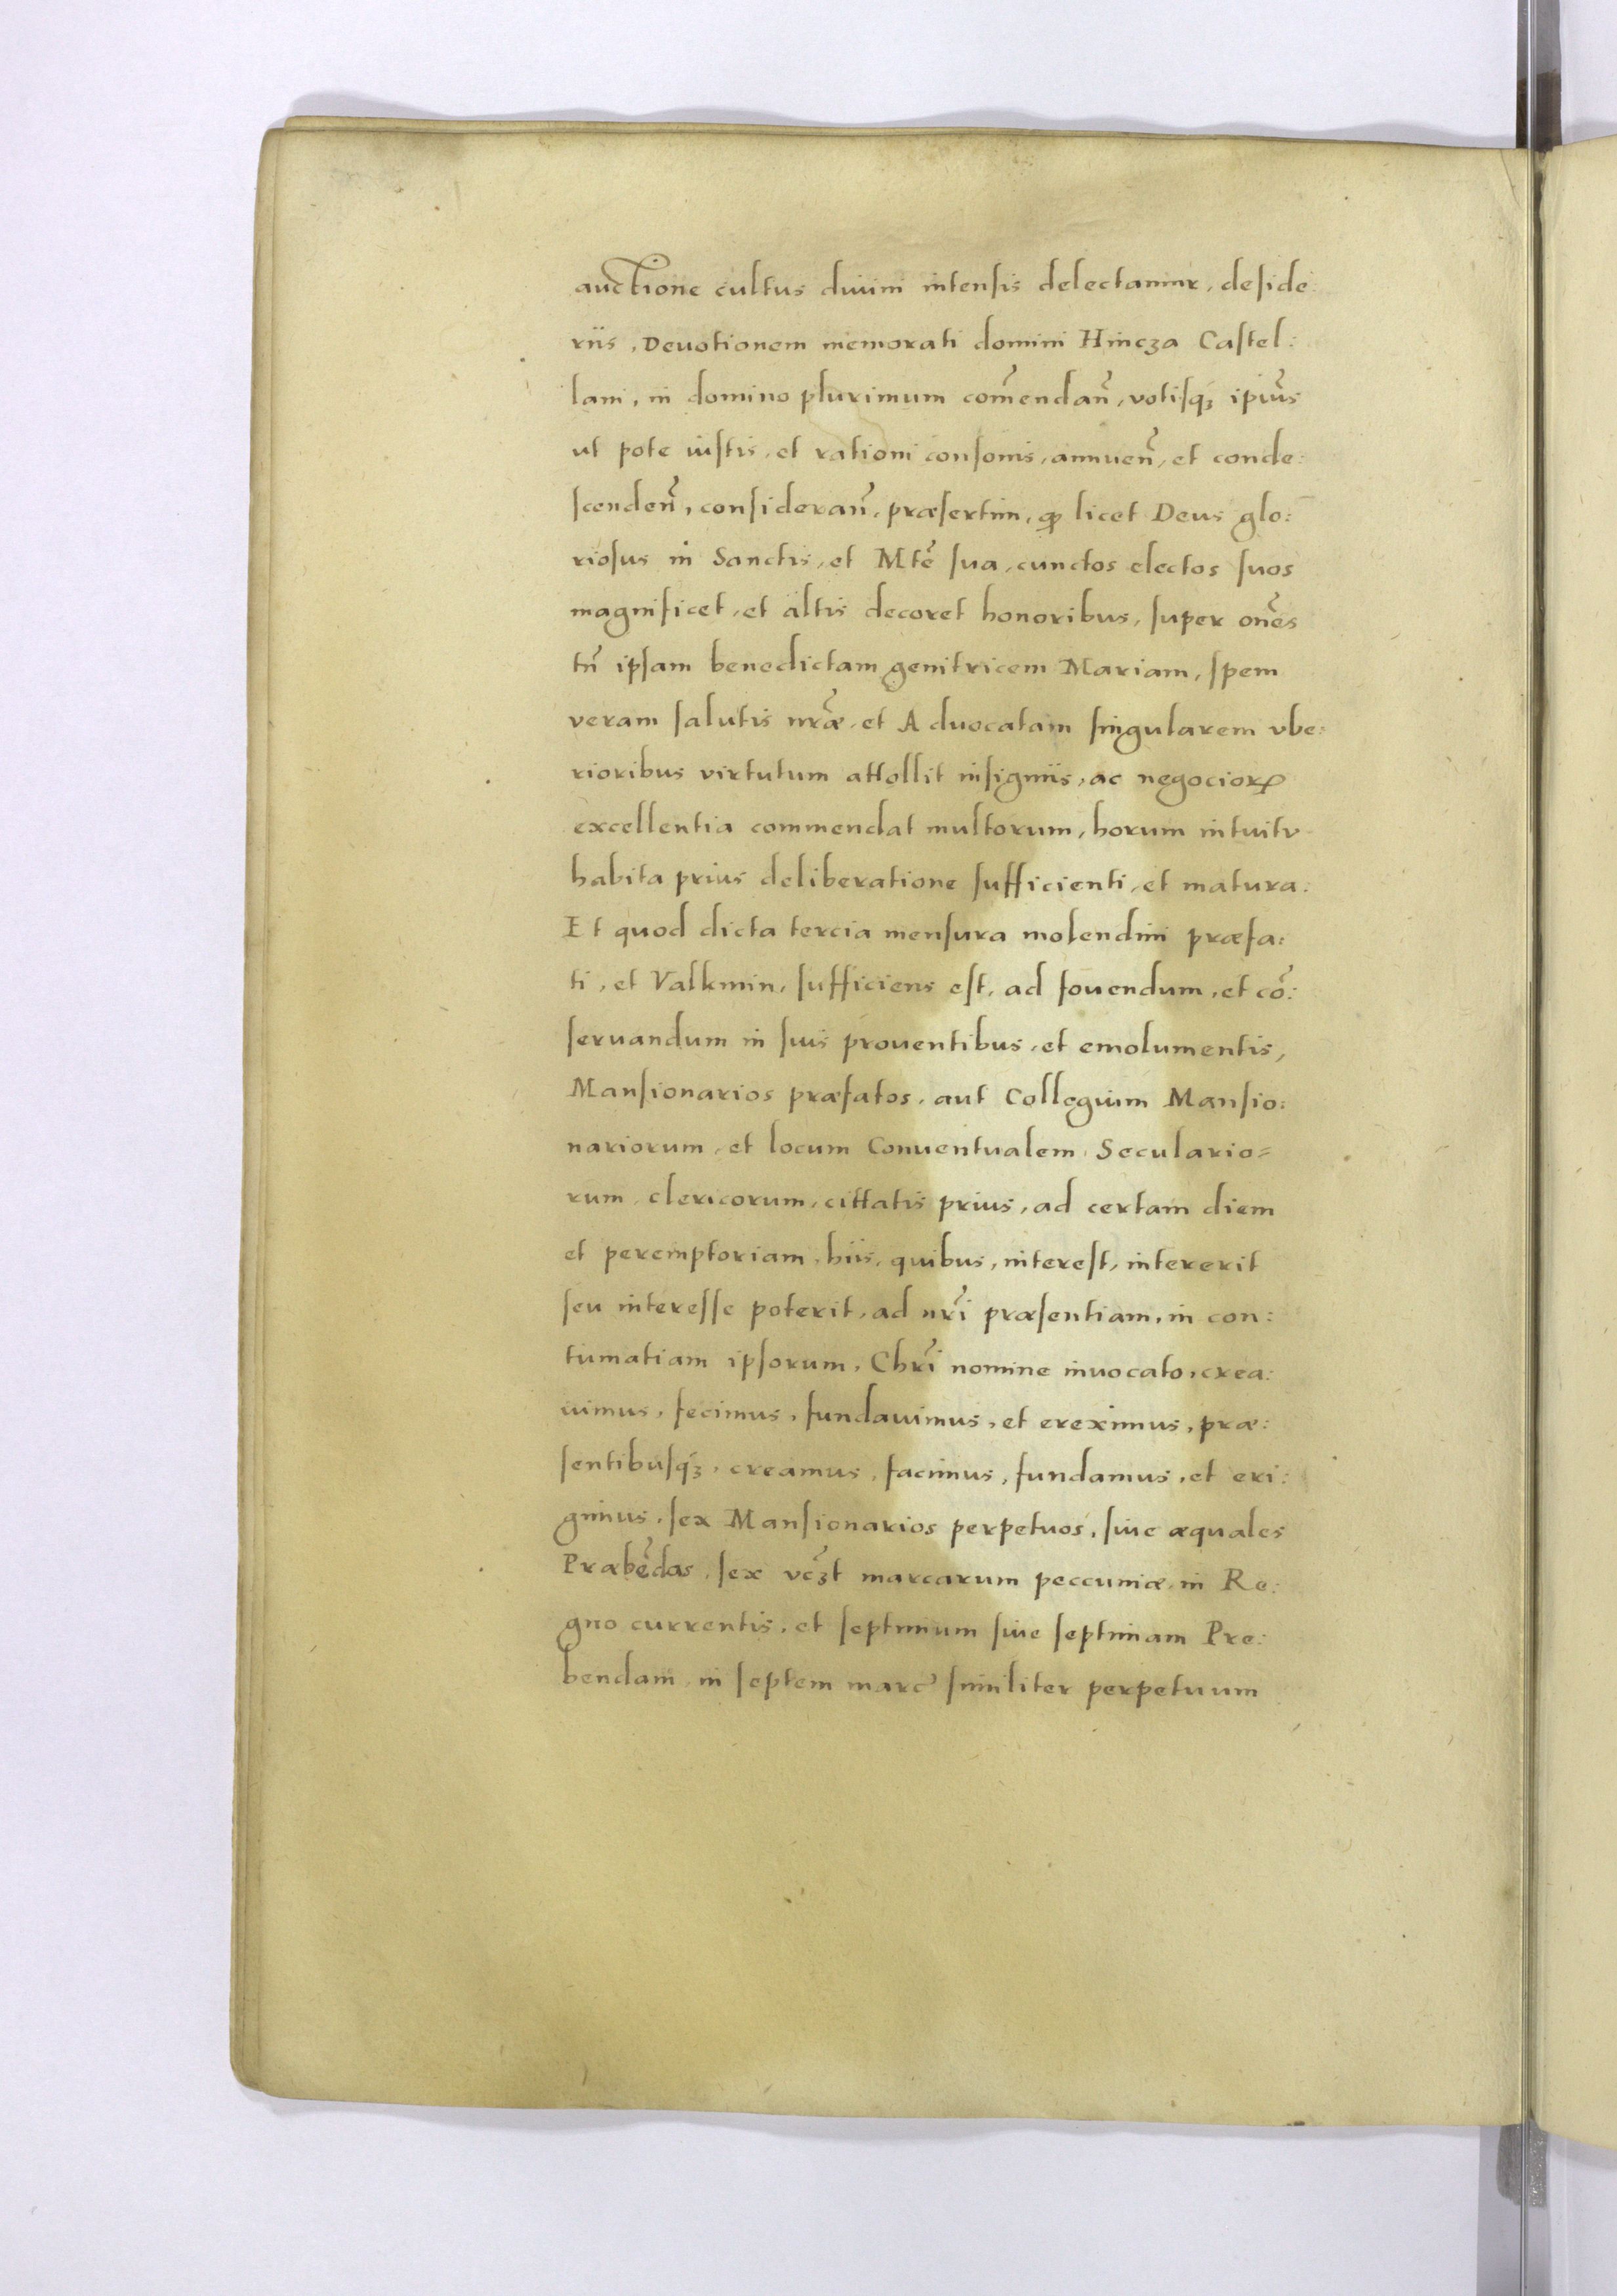 auctione cultus diuini intensis delectamur, deside:
riis, Deuotionem memorati domini Hincza Castel:
lani, in domino plurimum com̃endañ, votisq̃ꝫ ipiũs
ut pote iustis, et rationi consonis, annueñ, et conde:
scendeñ, consideran̄, præsertim, ꝙ licet Deus glo:
riosus in Sanctis, et Mtẽ sua, cunctos electos suos
magnificet, et altis decoret honoribus, super oñes
tñ ipsam benedictam genitricem Mariam, spem
veram salutis nr̃æ, et Aduocatam singularem vbe:
rioribus virtutum attollit insigniis, ac negocioꝝ
excellentia commendat multorum, horum intuitv
habita prius deliberatione sufficienti, et matura:
Et quod dicta tercia mensura molendini præfa:
ti, et Valkmin, sufficiens est, ad fouendum, et cõ:
seruandum in suis prouentibus, et emolumentis,
Mansionarios præfatos, aut Collegium Mansio:
nariorum, et locum Conuentualem Seculario=
rum clericorum, cittatis prius, ad certam diem
et peremptoriam, hiis, quibus, interest, intererit
seu interesse poterit, ad nr̃i præsentiam, in con:
tumatiam ipsorum, Chr̃i nomine inuocato, crea:
uimus, fecimus, fundauimus, et ereximus, præ:
sentibusq̃ꝫ, creamus, facimus, fundamus, et eri:
gimus, sex Mansionarios perpetuos, siue æquales
Præbẽdas, sex vcꝫ̃t marcarum peccuniæ, in Re:
gno currentis, et septimum siue septimam Pre:
bendam, in septem marc̃ similiter perpetuum